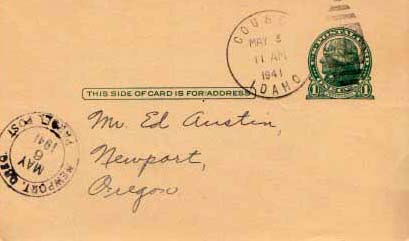 MAY 3
11 AM
1941
IDAHO
1 1
THIS SIDE OF CARD IS FOR ADDRESS
Mr. Ed Austin,
Newport,
Oregon
NEWPORT, OREG
MAY
6
1941
POST